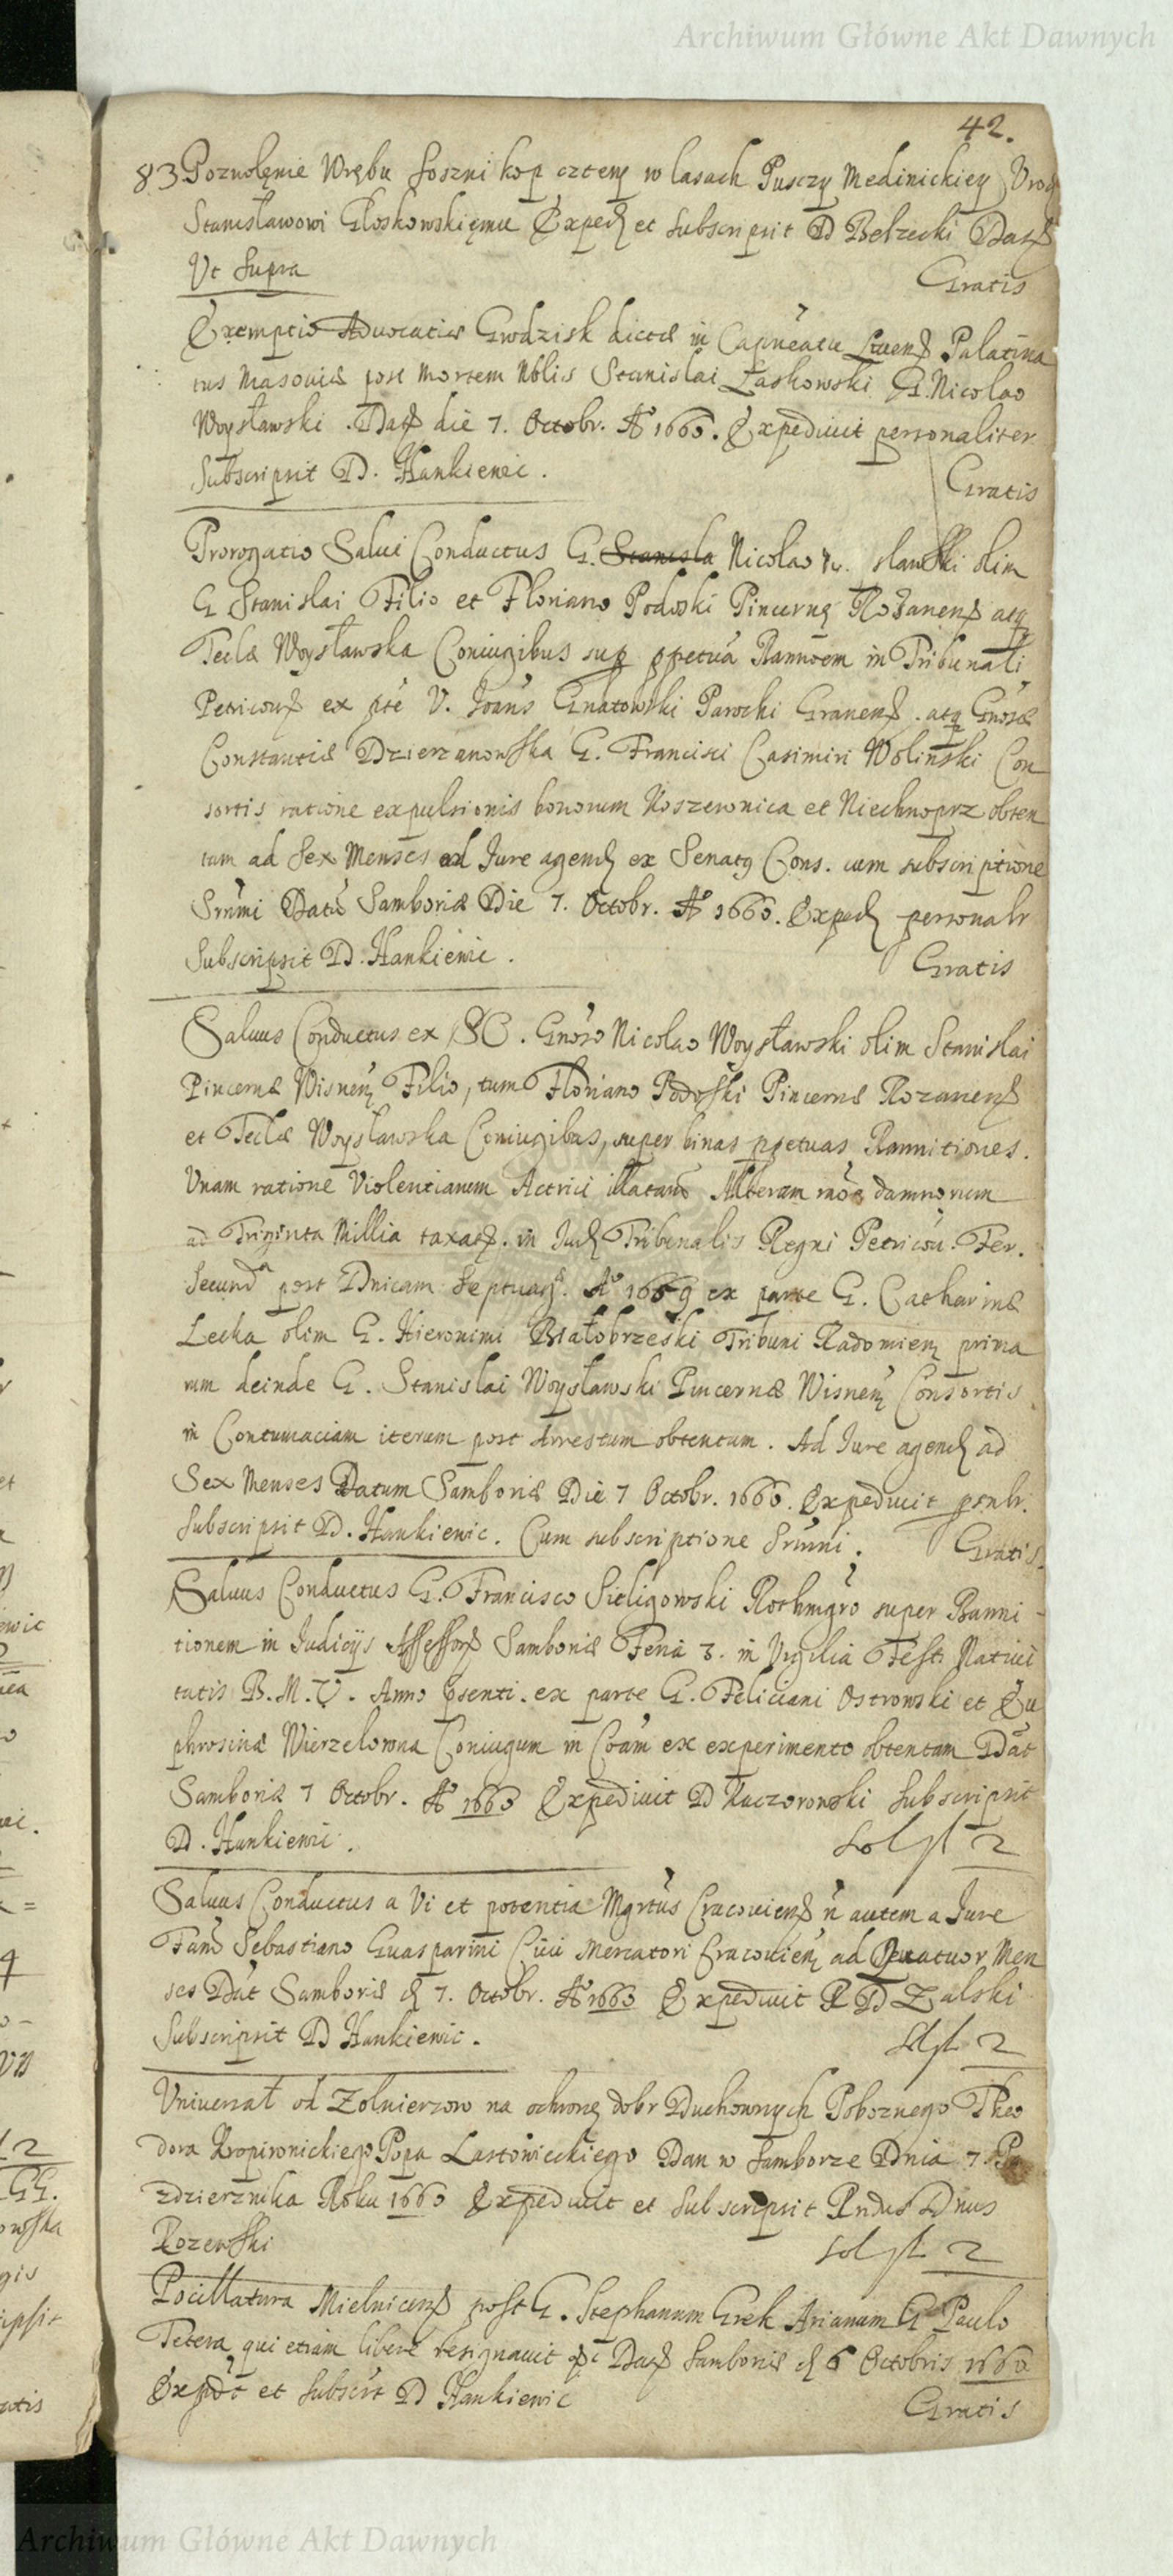 Archiwum Główne Akt Dawnych
42.
83 Pozwolęnie Wrębu soszni kop cztery w lasach Pusczy Medinickiey Urod
Stanisławowi Głoskowskięmu Exped et subscripsit D Belzecki Dat
Ut supra
Gratis
Exemptio Advocatiæ Grodzisk dictæ in Capneatu Livens Palatina
tus Masoviæ post mortem Nblis Stanislai Laskowski G. Nicolao
Woysławski . Dat die 7. Octobr. Aº 1660. Expedivit personaliter
Subscripsit D. Hankiewic .
Gratis
Prorogatio Salvi Conductus G. Stanisla Nicolao slawski olim
G Stanislai Filio et Floriano Podoski Pincernę Rożanens atq
Teclæ Woysławska Coniugibus sup ppetuā Bannōem in Tribunali
Petricou ex pte V. Joāis Gnatowski Parochi Granens . atq Gnosæ
Constantiæ Dzierzanowska G. Francisci Casimiri Woliński Con
sortis ratione expulsionis bonorum Koszewnica et Niechnoprz obten
tam ad Sex Menses ad Jure agend ex Senatq Cons. cum subscriptione
Srmi Datū Samboriæ Die 7. Octobr. Aº 1660. Exped personalr
Subscripsit D. Hankiewic .
Gratis
Salvus Conductus ex SC . Gnoso Nicolao Woysławski olim Stanislai
Pincernæ Visnen Filio, tum Floriano Podoski Pincernæ Rozanens
et Teclæ Woysławska Coniugibus, super binas ppetuas Bannitiones.
Unam ratione Violentiarum Actrici illatarū Alteram rnōe damnorum
ad Triginta Millia taxat. in Jud Tribunalis Regni Petricou. Fer.
Secunda post Dnicam Septuag. Aº 1659 ex parte G. Catharinæ
Lecka olim G. Hieronimi Białobrzeski Tribuni Radomien prima
rum deinde G. Stanislai Woysławski Pincernæ Wisnen Consortis
in Contumaciam iterum post Arrestum obtentum . Ad Jure agend ad
Sex Menses Datum Samboriæ Die 7 Octobr. 1660. Expedivit psnlr.
Subscripsit D. Hankiewic. Cum subscriptione Srmi .
Gratis.
Salvus Conductus G. Francisco Sieligowski Rothmgro super Banni-
tionem in Judicijs Assessor Samboriæ Feria 3. in Vigilia Festi Nativi
tatis B. M. V. Anno psenti. ex parte G. Feliciani Ostrowski et Eu
phrosinæ Wierzelowna Coniugum in Coam ex experimento obtentam Dat
Samboriæ 7 Octobr. Aº 1660 Expedivit D Kaczorowski Subscripsit
D. Hankiewic .
Sol fl 2
Salvus Conductus a Vi et potentia Mgrtus Cracoviens ñ autem a Jure
Famo Sebastiano Guasparini Civi Mercatori Cracovien ad Quatuor Men
ses Dat Samboriæ d 7. Octobr. Aº 1660 Expedivit R D Zalski
Subscripsit D Hankiewic .
Sol fl 2
Universał od Zołnierzow na ochronę dobr Duchownych Poboznego Theo
dora Kropiwnickiego Popa Lastowieckiego Dan w Samborze Dnia 7. Pa
zdziernika Roku 1660 Expedivit et Subscripsit Rndus Dnus
Rozewski
Sol fl 2
Pocillatura Mielnicens post G. Stephanum Grek Arianum G Paulo
Tetera qui etiam libere resignavit Dat Samboriæ d 6 Octobris 1660
Expdt et Subscrt D Hankiewic
Gratis
Archiwum Główne Akt Dawnych